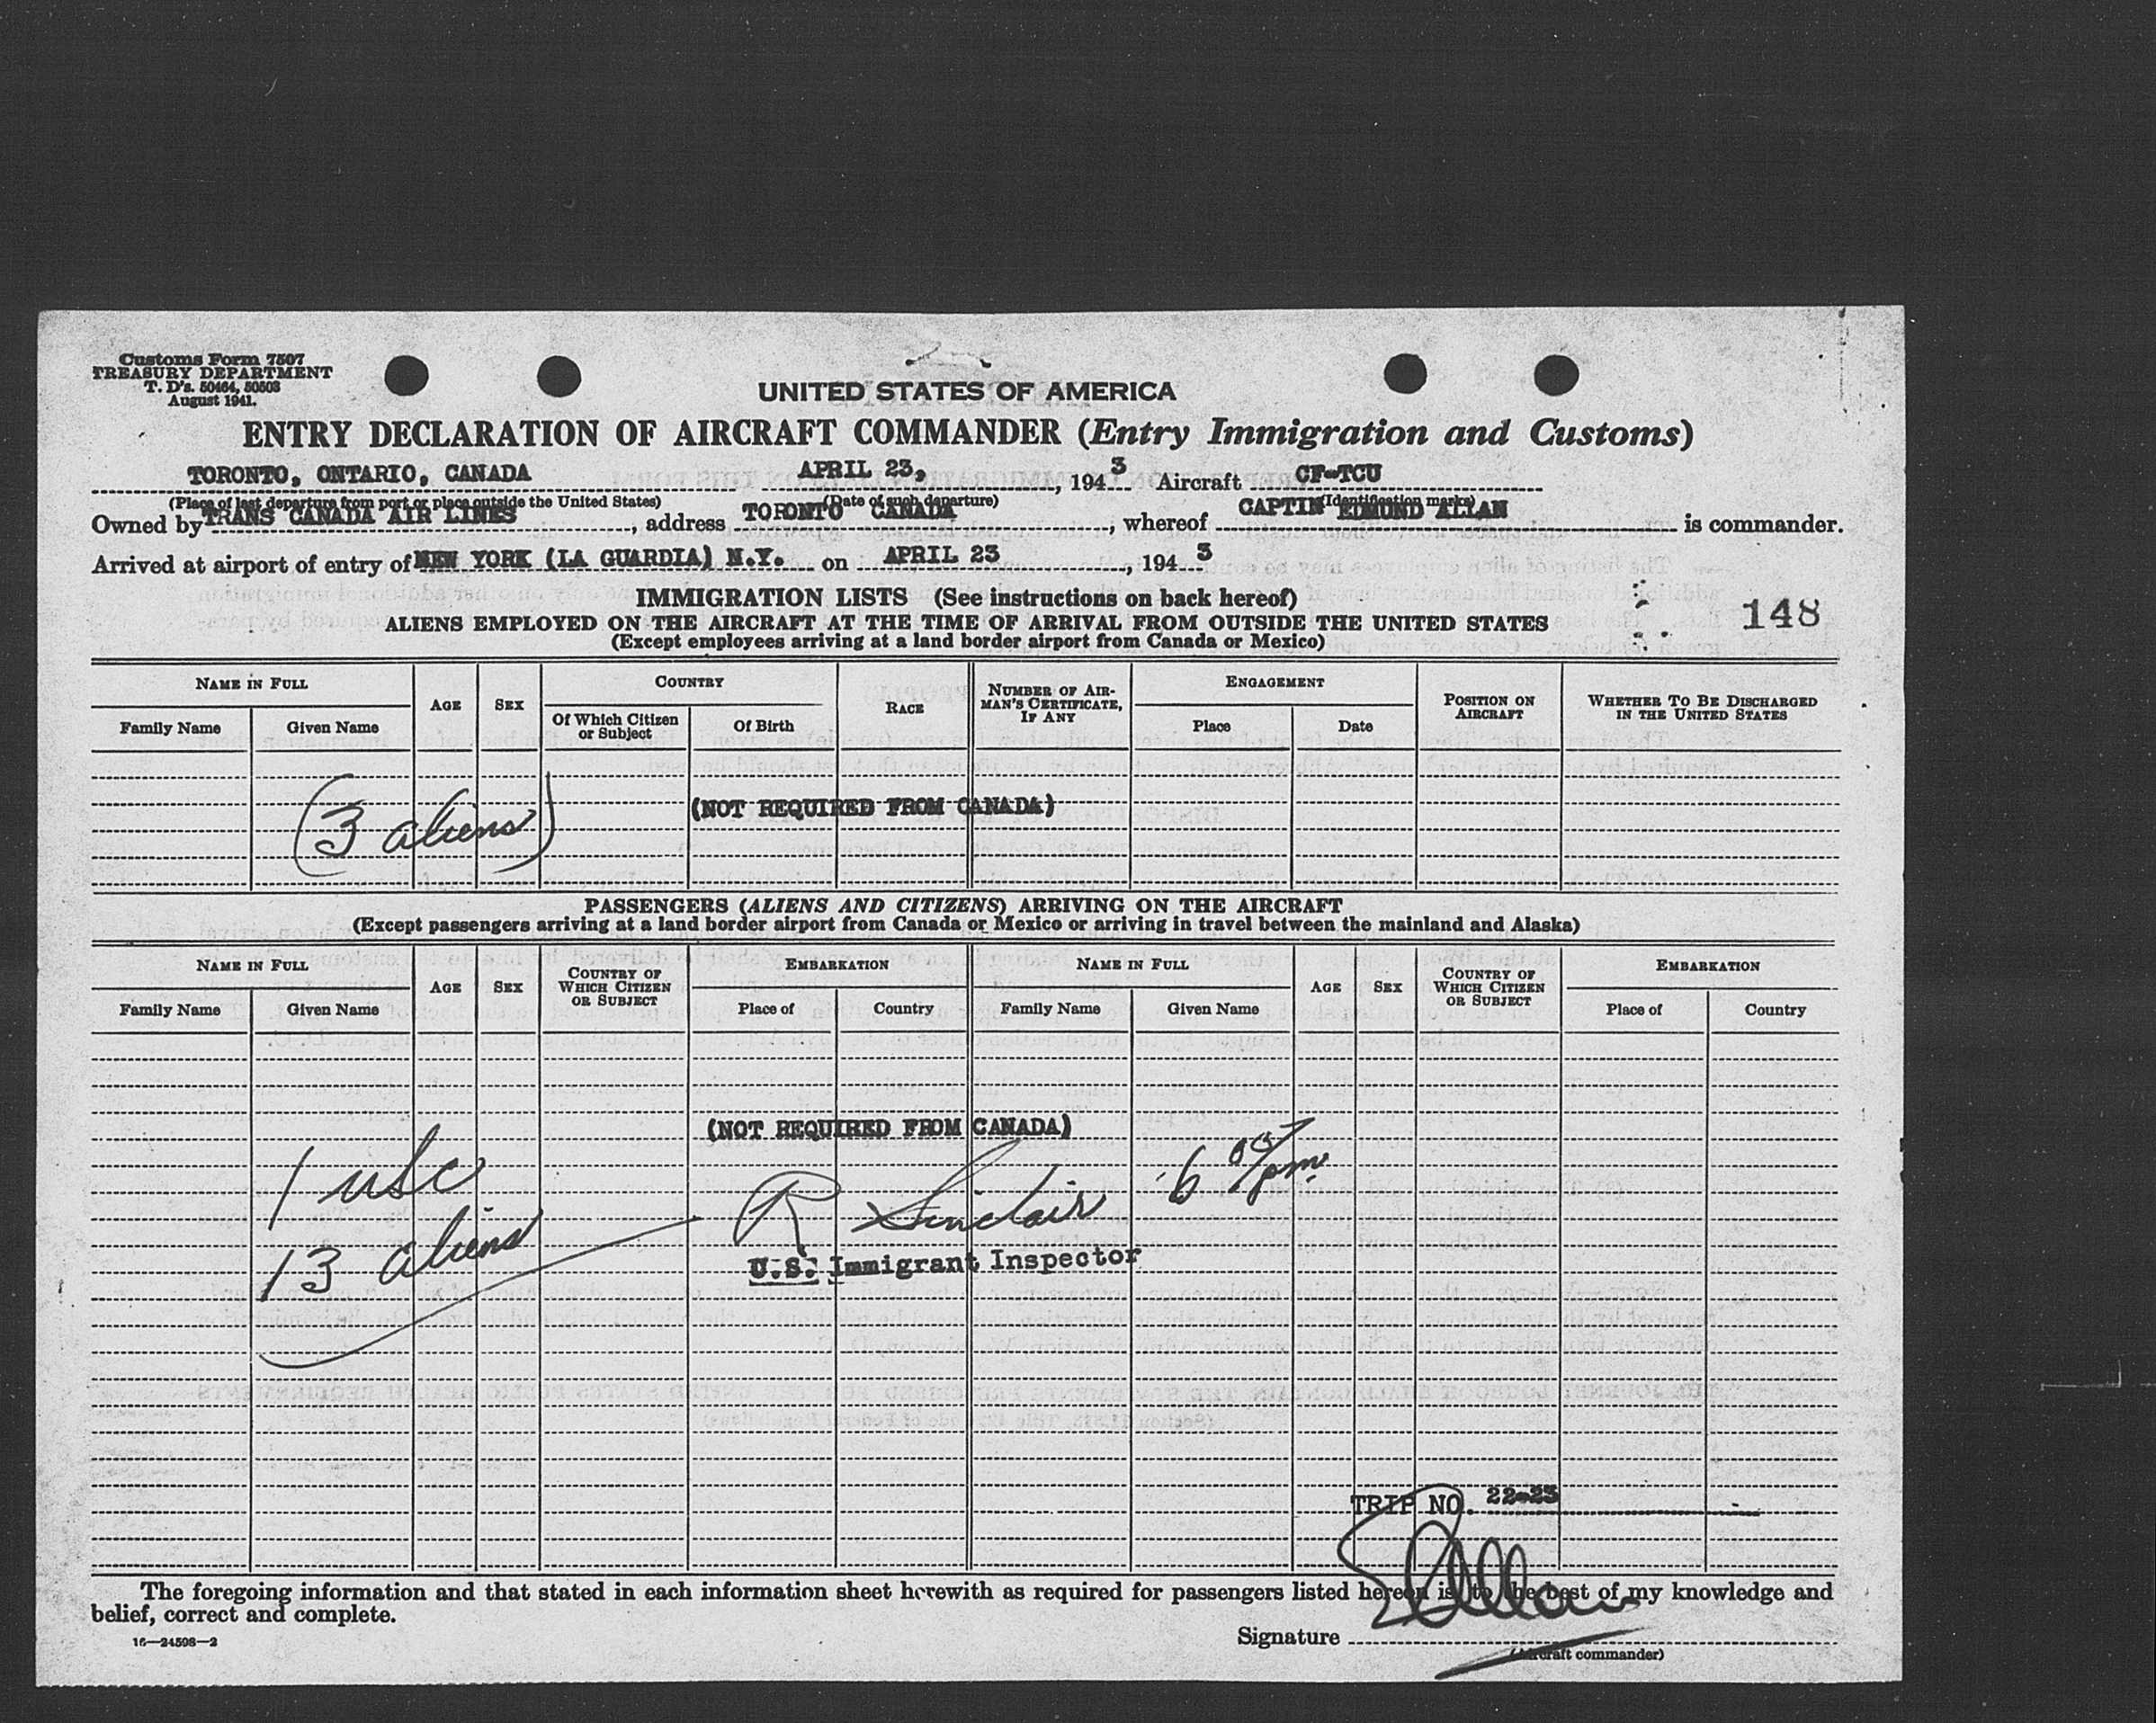 Customs Form 7507
TREASURY DEPARTMENT
T. D's. 50464, 50503
August 1941.
UNITED STATES OF AMERICA
ENTRY DECLARATION OF AIRCRAFT COMMANDER (Entry Immigration and Customs)
TORONTO, ONTARIO, CANADA APRIL 23, 1943 Aircraft CF-TCU
(Place of last departure from port or place outside the United States) (Date of such departure) (Identification marks)
Owned by TRANS CANADA AIR LINES, address TORONTO CANADA, whereof CAPTIN EDMUND ALLAN is commander.
Arrived at airport of entry of NEW YORK (LA GUARDIA) N.Y. on APRIL 23, 1943
IMMIGRATION LISTS (See instructions on back hereof)
148
ALIENS EMPLOYED ON THE AIRCRAFT AT THE TIME OF ARRIVAL FROM OUTSIDE THE UNITED STATES
(Except employees arriving at a land border airport from Canada or Mexico)
NAME IN FULL AGE SEX COUNTRY RACE NUMBER OF AIRMAN'S CERTIFICATE, IF ANY ENGAGEMENT POSITION ON AIRCRAFT WHETHER TO BE DISCHARGED IN THE UNITED STATES
Family Name Given Name Of Which Citizen or Subject Of Birth Place Date
(3 aliens) (NOT REQUIRED FROM CANADA)
PASSENGERS (ALIENS AND CITIZENS) ARRIVING ON THE AIRCRAFT
(Except passengers arriving at a land border airport from Canada or Mexico or arriving in travel between the mainland and Alaska)
NAME IN FULL AGE SEX COUNTRY OF WHICH CITIZEN OR SUBJECT EMBARKATION NAME IN FULL AGE SEX COUNTRY OF WHICH CITIZEN OR SUBJECT EMBARKATION
Family Name Given Name Place of Country Family Name Given Name Place of Country
(NOT REQUIRED FROM CANADA)
1 usc R Sinclair 6 05/pm.
13 aliens
U.S. Immigrant Inspector
TRIP NO. 22-23
The foregoing information and that stated in each information sheet herewith as required for passengers listed hereon is, to the best of my knowledge and
belief, correct and complete.
16—24598—2
Signature E Allan
(Aircraft commander)